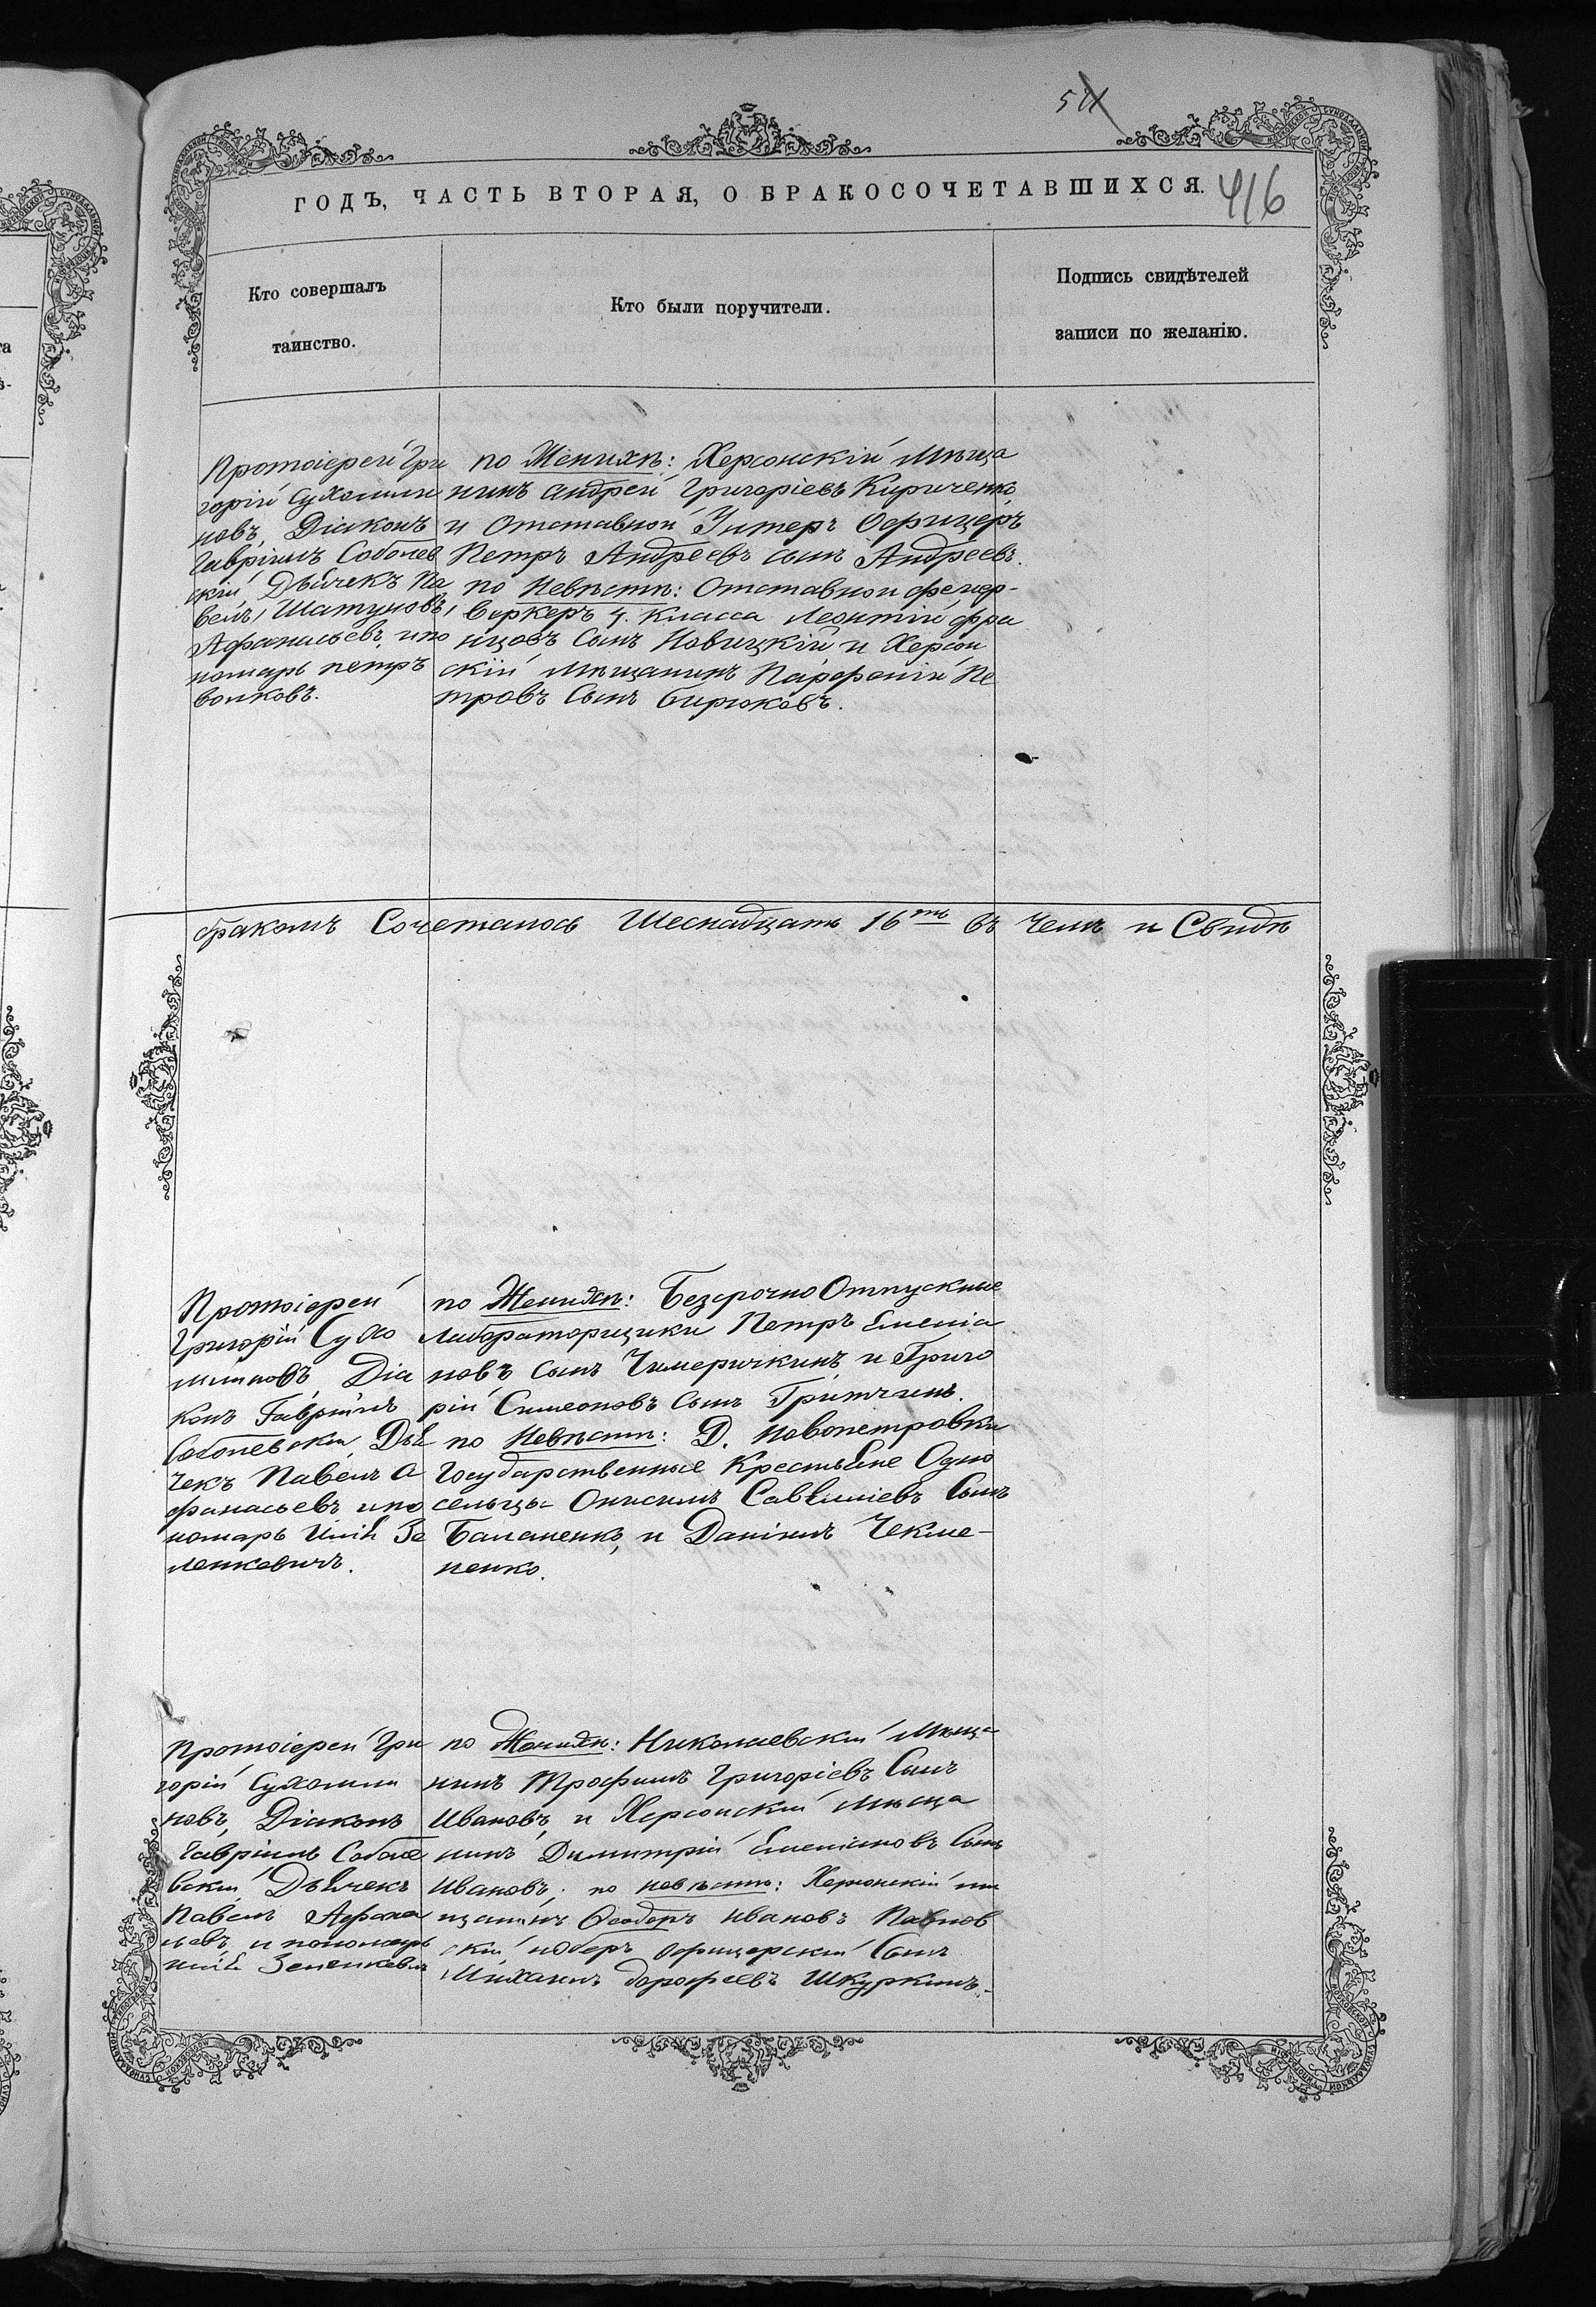 511
ГОДЪ, ЧАСТЬ ВТОРАЯ, О БРАКОСОЧЕТАВШИХСЯ.
416
Кто совершалъ
таинство.
Кто были поручители.
Подпись свидѣтелей
записи по желанію.
Протоіерей Гри
горій Сухомли
новъ, Діаконъ
Гавріилъ Соболев
скій, Дьячекъ Па
велъ Шатуновъ,
Афанасьевъ, и по
номарь петръ
волковъ.
по Женихѣ: Херсонскій мѣща
нинъ андрей Григоріевъ Кириченко,
и Отставной Унтеръ Офицеръ
Петръ Андреевъ сынъ Андреевъ.
по Невѣстѣ: Отставной фееер-
веркеръ 4. класса Леонтій фра
нцовъ Сынъ Новицкій и Херсон
скій мѣщанинъ Парфеній Пе
тровъ Сынъ бирюковъ.
бракомъ Сочеталось Шеснадцать 16ть въ чемъ и Свидѣ
Протоіерей
Григорій Сухо
млиновъ Діа
конъ Гавріилъ
Соболевскій, Дья
чекъ Павелъ А
фанасьевъ и по
номарь Илія Зе
ленкевичъ.
по Женихѣ: Безсрочно Отпускные
Лабораторщики Петръ Емелiа
новъ сынъ Чимеричкинъ и Григо
рій Симеоновъ Сынъ Гритчинъ.
по Невѣстѣ: Д. Новопетровки
Государственные Крестьяне Одно
сельцы Онисимъ Савеліевъ Сынъ
Баланенко, и Даніилъ Чекме-
ненко.
Протоіерей Гри
горій Сухомли
новъ, Діаконъ
Гавріилъ Соболе
вскій Дьячекъ
Павелъ Афана
ьевъ и пономарь
илія Зеленкевич
по Женихѣ: Николаевскій мѣща
нинъ Трофимъ Григоріевъ Сынъ
Ивановъ, и Херсонскій мѣща
нинъ Димитрій Емеліановъ Сынъ
Ивановъ; по невѣстѣ: Херсонскій мѣ
щанинъ Ѳеодоръ ивановъ Павлов
скій и оберъ офицерскій Сынъ
Михаилъ дорофеевъ Шкуркинъ.